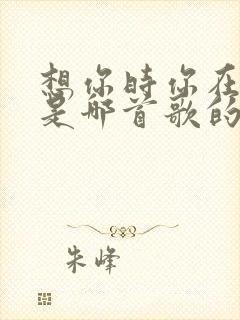 想你时你在
是哪首歌的
朱峰